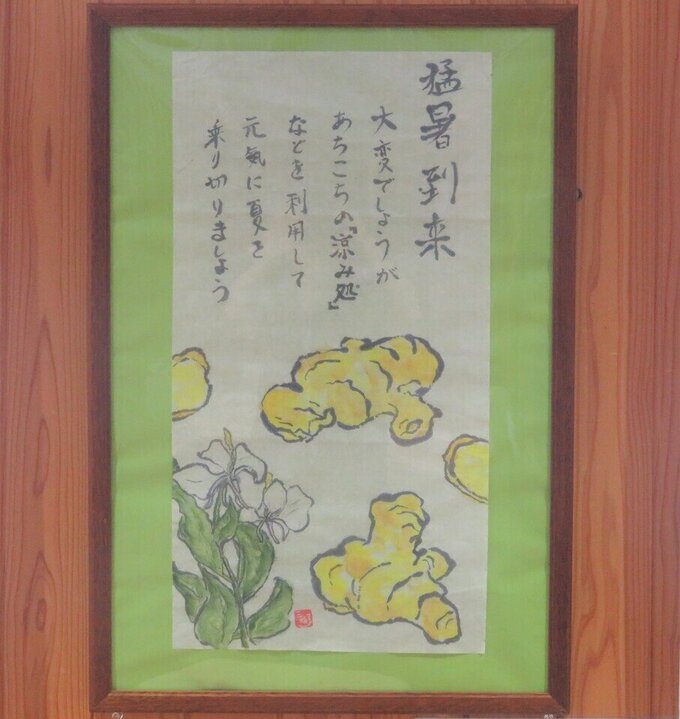 猛暑到来
大変でしょうが
あちこちの『涼み処』
などを利用して
元氣に夏を
乗り切りましょう